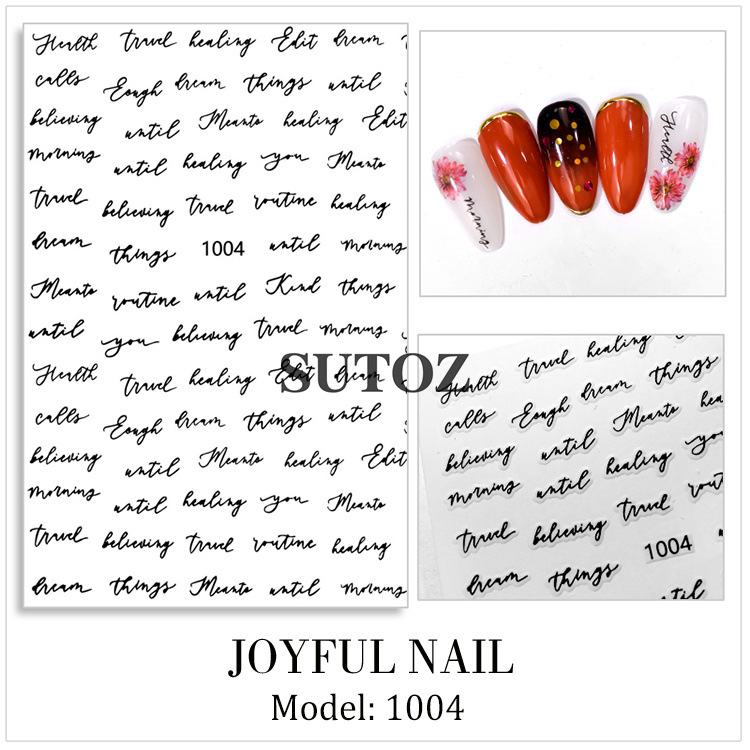 Health travel healing Edit dream
calls Eough dream things until
believing until Meanto healing Edit
morning until healing you Meanto
travel believing travel routine healing
dream things 1004 until morning
Meanto routine until Kind things
until you believing travel morning
SUTOZ
Health travel healing Edit dream
calls Eough dream things until
believing until Meanto healing Edit
morning until healing you Meanto
travel believing travel routine healing
dream things Meanto until morning
morning
Health
Health travel healing
calls Eough dream things
believing until Meanto hea
morning until healing you
travel believing travel rout
dream things 1004
til
JOYFUL NAIL
Model: 1004